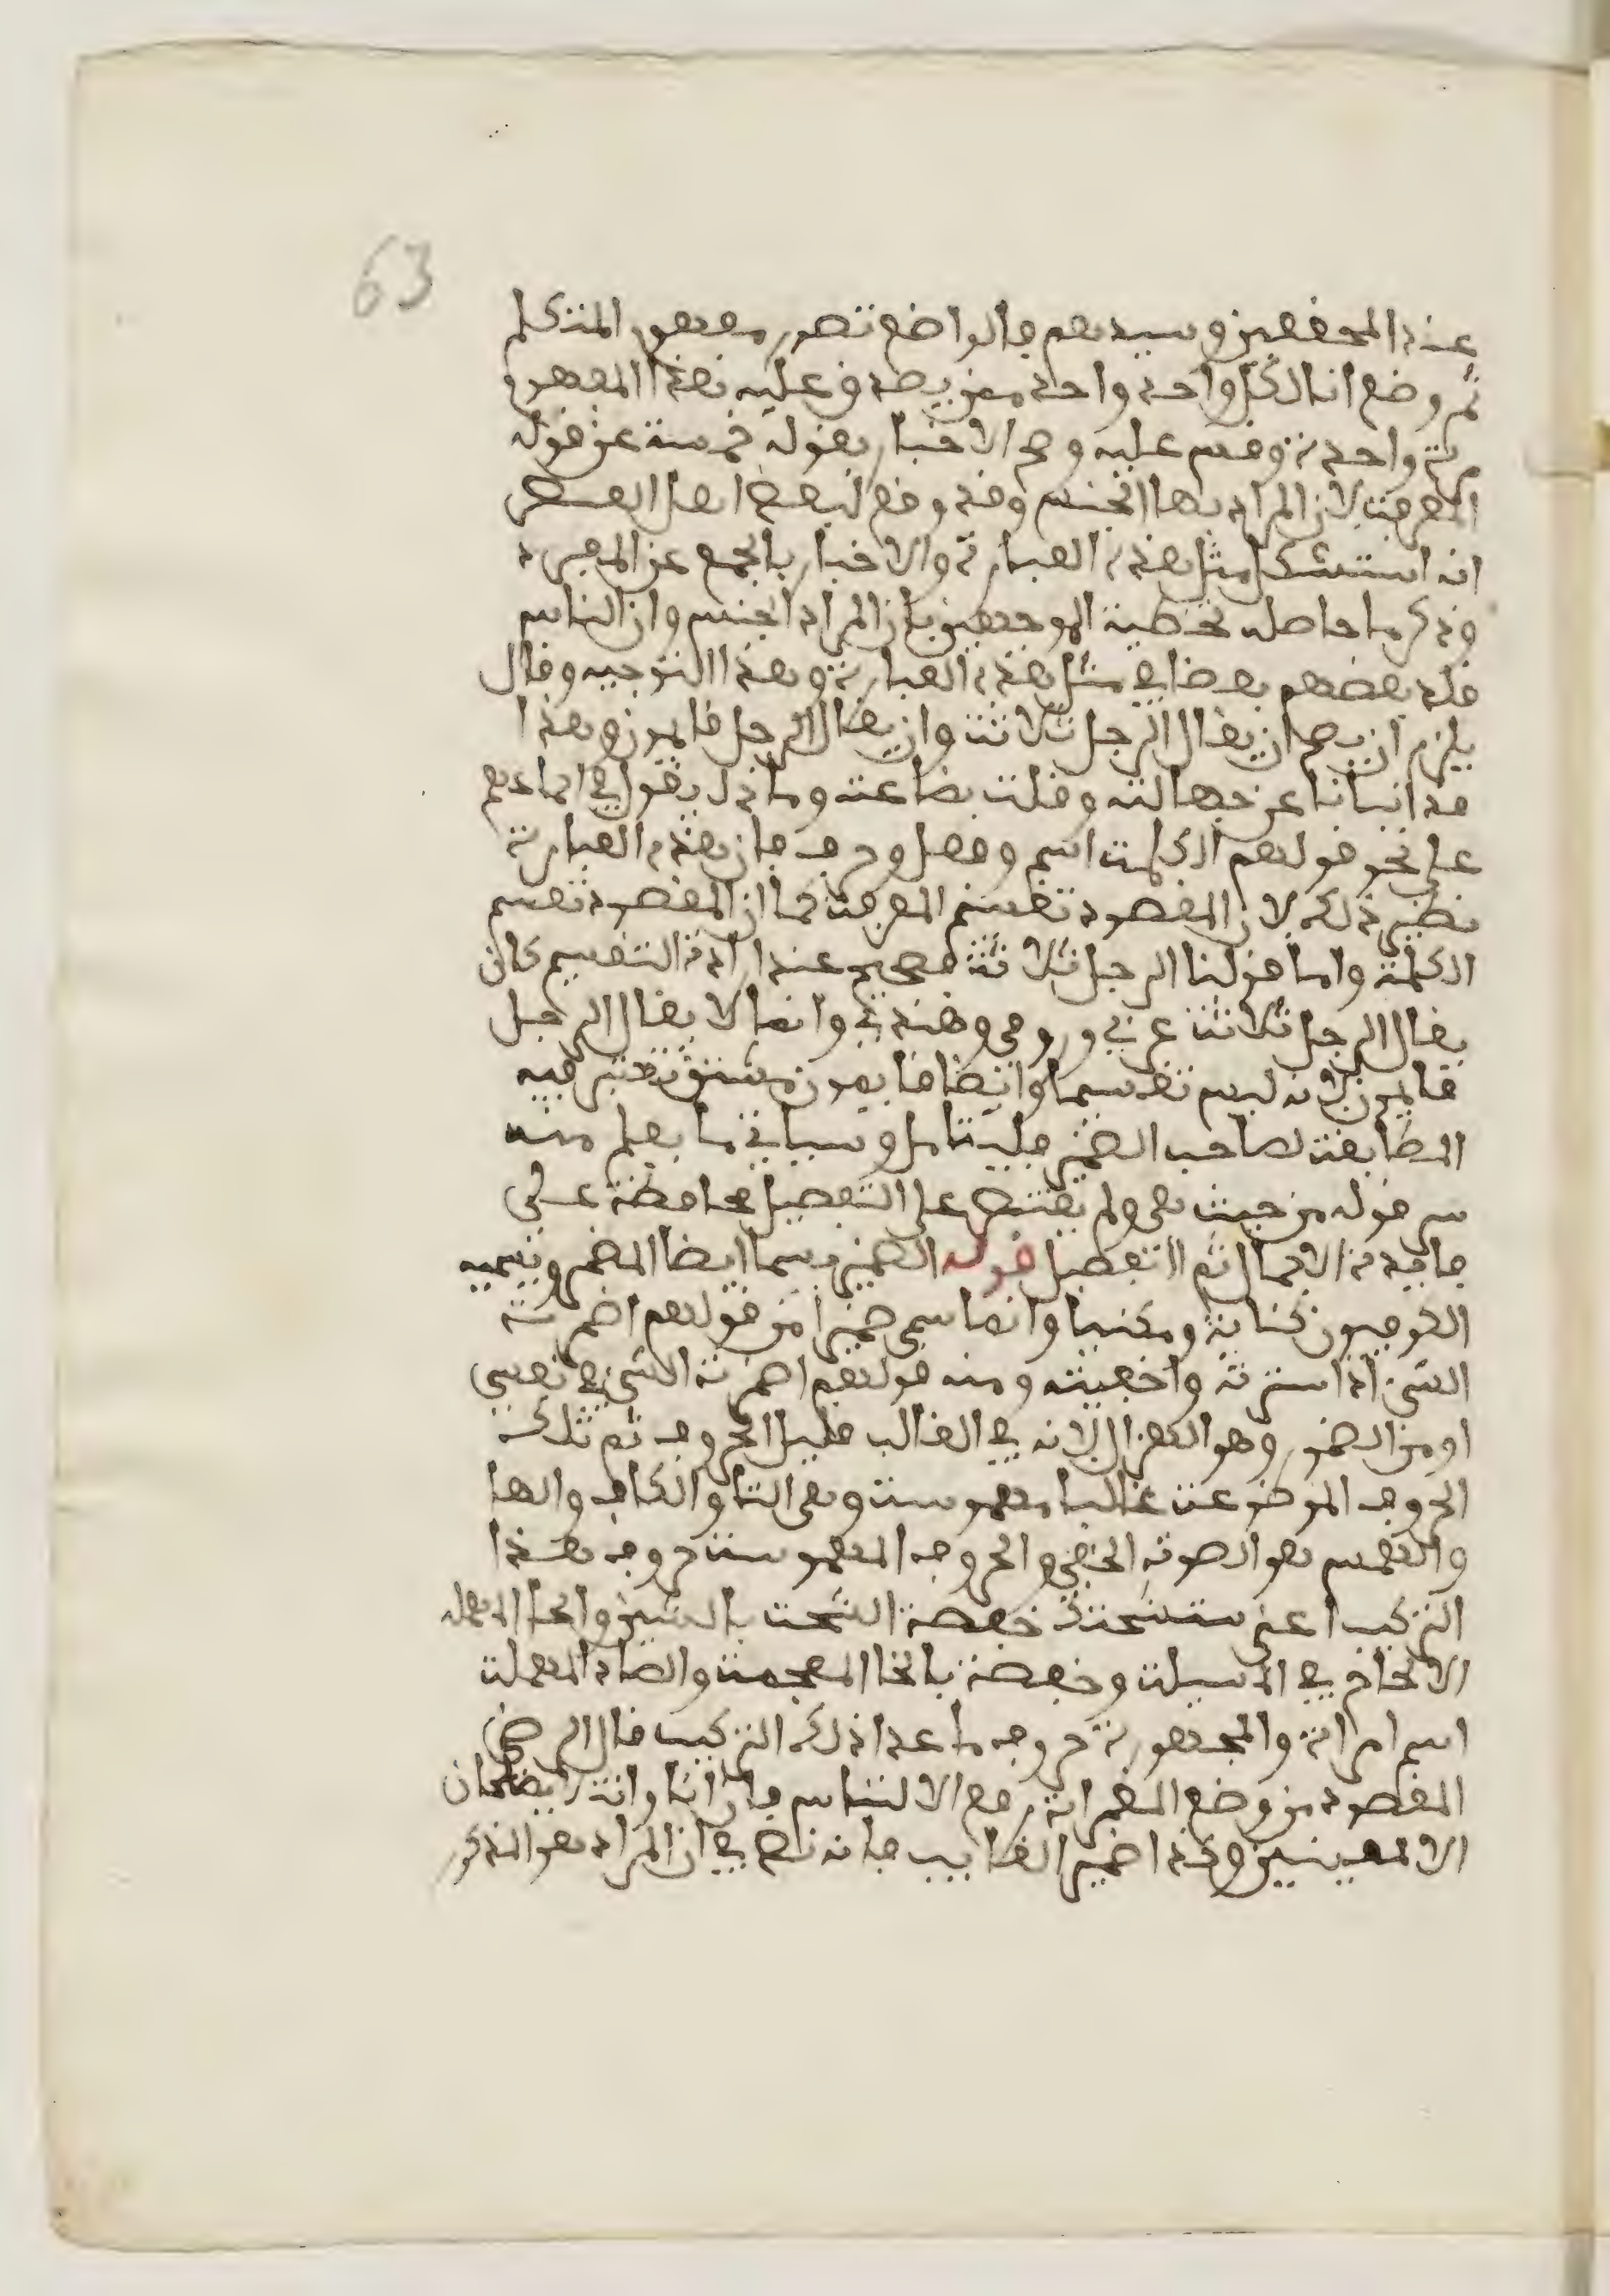 63
عند المحققين وسيدهم فالواضع تصور مفهوم المتكلم
ثم وضع انا لكل واحد واحد ممن يصدق عليه هذا المفهوم
مرة واحدة وقس عليه وصح الاخبار بقوله خمسة عن قوله
المعرفة لان المراد بها الجنس وقد وقع لبعض اهل العصر
انه استشكل مثل هذه العبارة والاخبار بالجمع عن المفرد
وذكر ما حاصله تخطية الموجهين بان المراد الجنس وان الناس
قلد بعضهم بعضا في مثل هذه العبارة وهذا التوجيه وقال
يلزم ان يصح ان يقال الرجل ثلاثة وان يقال الرجل قايمون وهذا
قد انبانا عن جهالته وقلت بضاعته وما ذا يقول في اجماعهم
على نحو قولهم الكلمة اسم وفعل وحرف فان هذه العبارة
نظير ذلك لان المقصود تقسيم المعرفة كما ان المقصود تقسيم
الكلمة واما قولنا الرجل ثلاثة فصحيح عند ارادة التقسيم كان
يقال الرجل ثلاثة عربي ورومي وهندي وانما لا يقال الرجل
قايمون لانه ليس تقسيما وايضا قايمون مشتق تعتبر فيه
المطابقة لصاحب الضمير فليتامل وسياتي ما يعلم منه
سر قوله من حيث هي ولم يقتصر على التفصيل محافظة على
فايدة الاجمال ثم التفصيل قوله الضمير يسما ايضا المضمر وتسميه
الكوفيون كناية ومكنيا وانما سمي ضميرا من قولهم اضمرت
الشيء اذا سترته واخفيته ومنه قولهم اضمرت الشيء في نفسي
او من الضمور وهو الهزال لانه في الغالب قليل الحروف ثم تلك
الحروف الموضوعة غالبا مهموسة وهي التا والكاف والها
والهمس هو الصوت الخفي والحروف المهموسة حروف هذا
التركيب اعني ستشحتك خصفة الشحت بالشين والحا المهملة
الالحاح في المسيلة وخصفة بالخا المعجمة والصاد المهملة
اسم امراة والمجهورة حروف ما عدا ذلك التركيب قال الرضي
المقصود من وضع المضمرات رفع الالتباس فان انا وانت لا يصلحان
الا لمعينين وكذا ضمير الغايب فانه نص في ان المراد هو المذكور